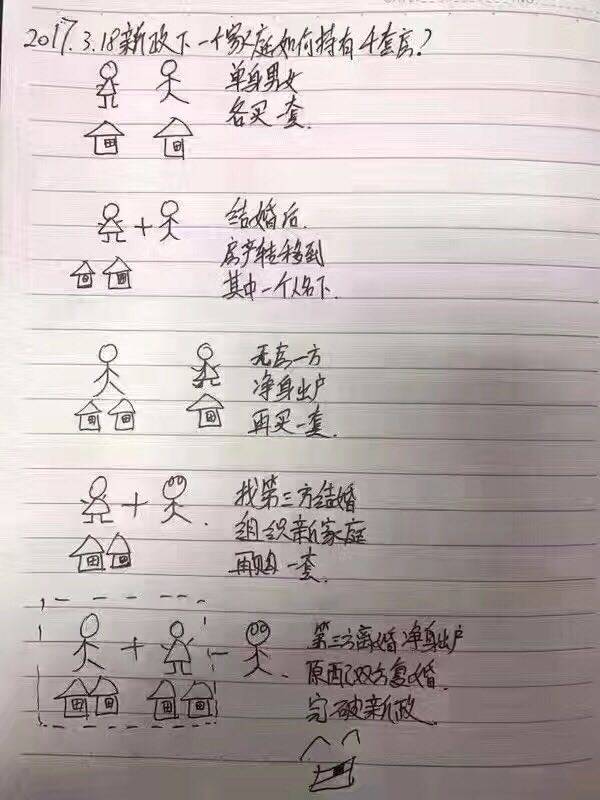 2017.3.18新政下一个家庭如何持有4套房?
单身男女
各买一套.
结婚后.
房产转移到
其中一个人名下.
无房一方
净身出户
再买一套.
找第三方结婚
组织新家庭
再购一套.
第三方离婚净身出户
原配双方复婚.
完破新政.